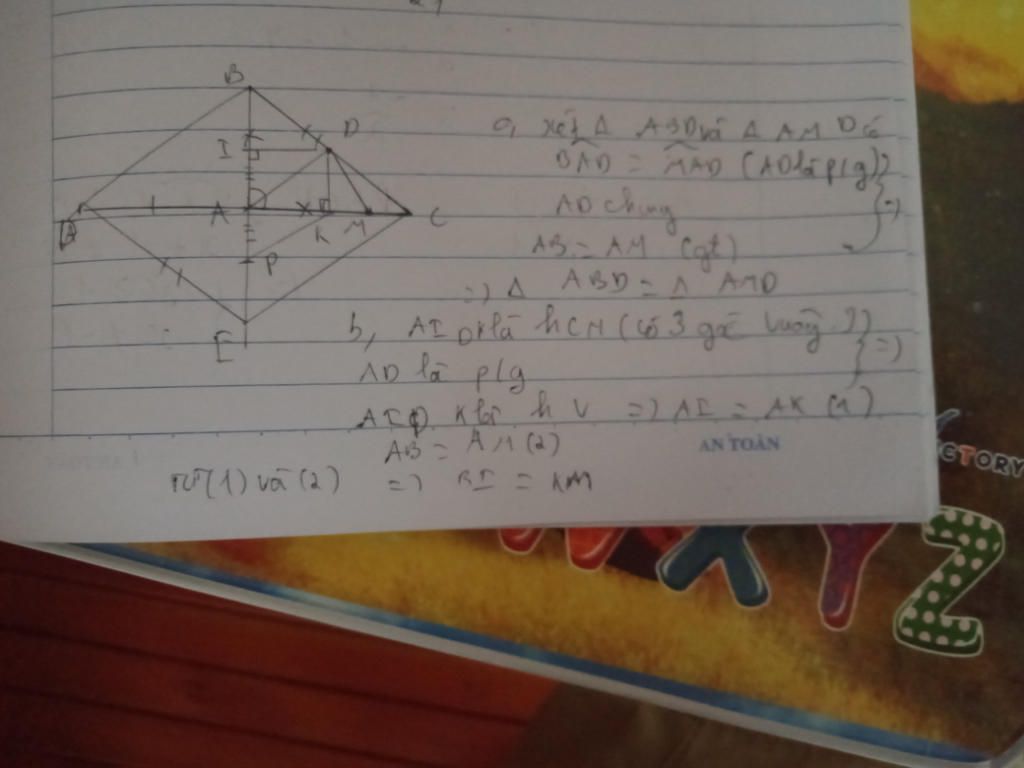 B
D
I
A
K
M
C
P
E
a, xét Δ ABD và Δ AMD có
BAD = MAD (AD là p/g)
AD chung
AB = AM (gt)
=) Δ ABD = Δ AMD
b, AIDK là hCN (có 3 góc vuông)
AD là p/g
AIDK là h V =) AI = AK (1)
AB = AM (2)
AN TOÀN
từ (1) và (2) =) BI = KM
CTORY
X Y Z